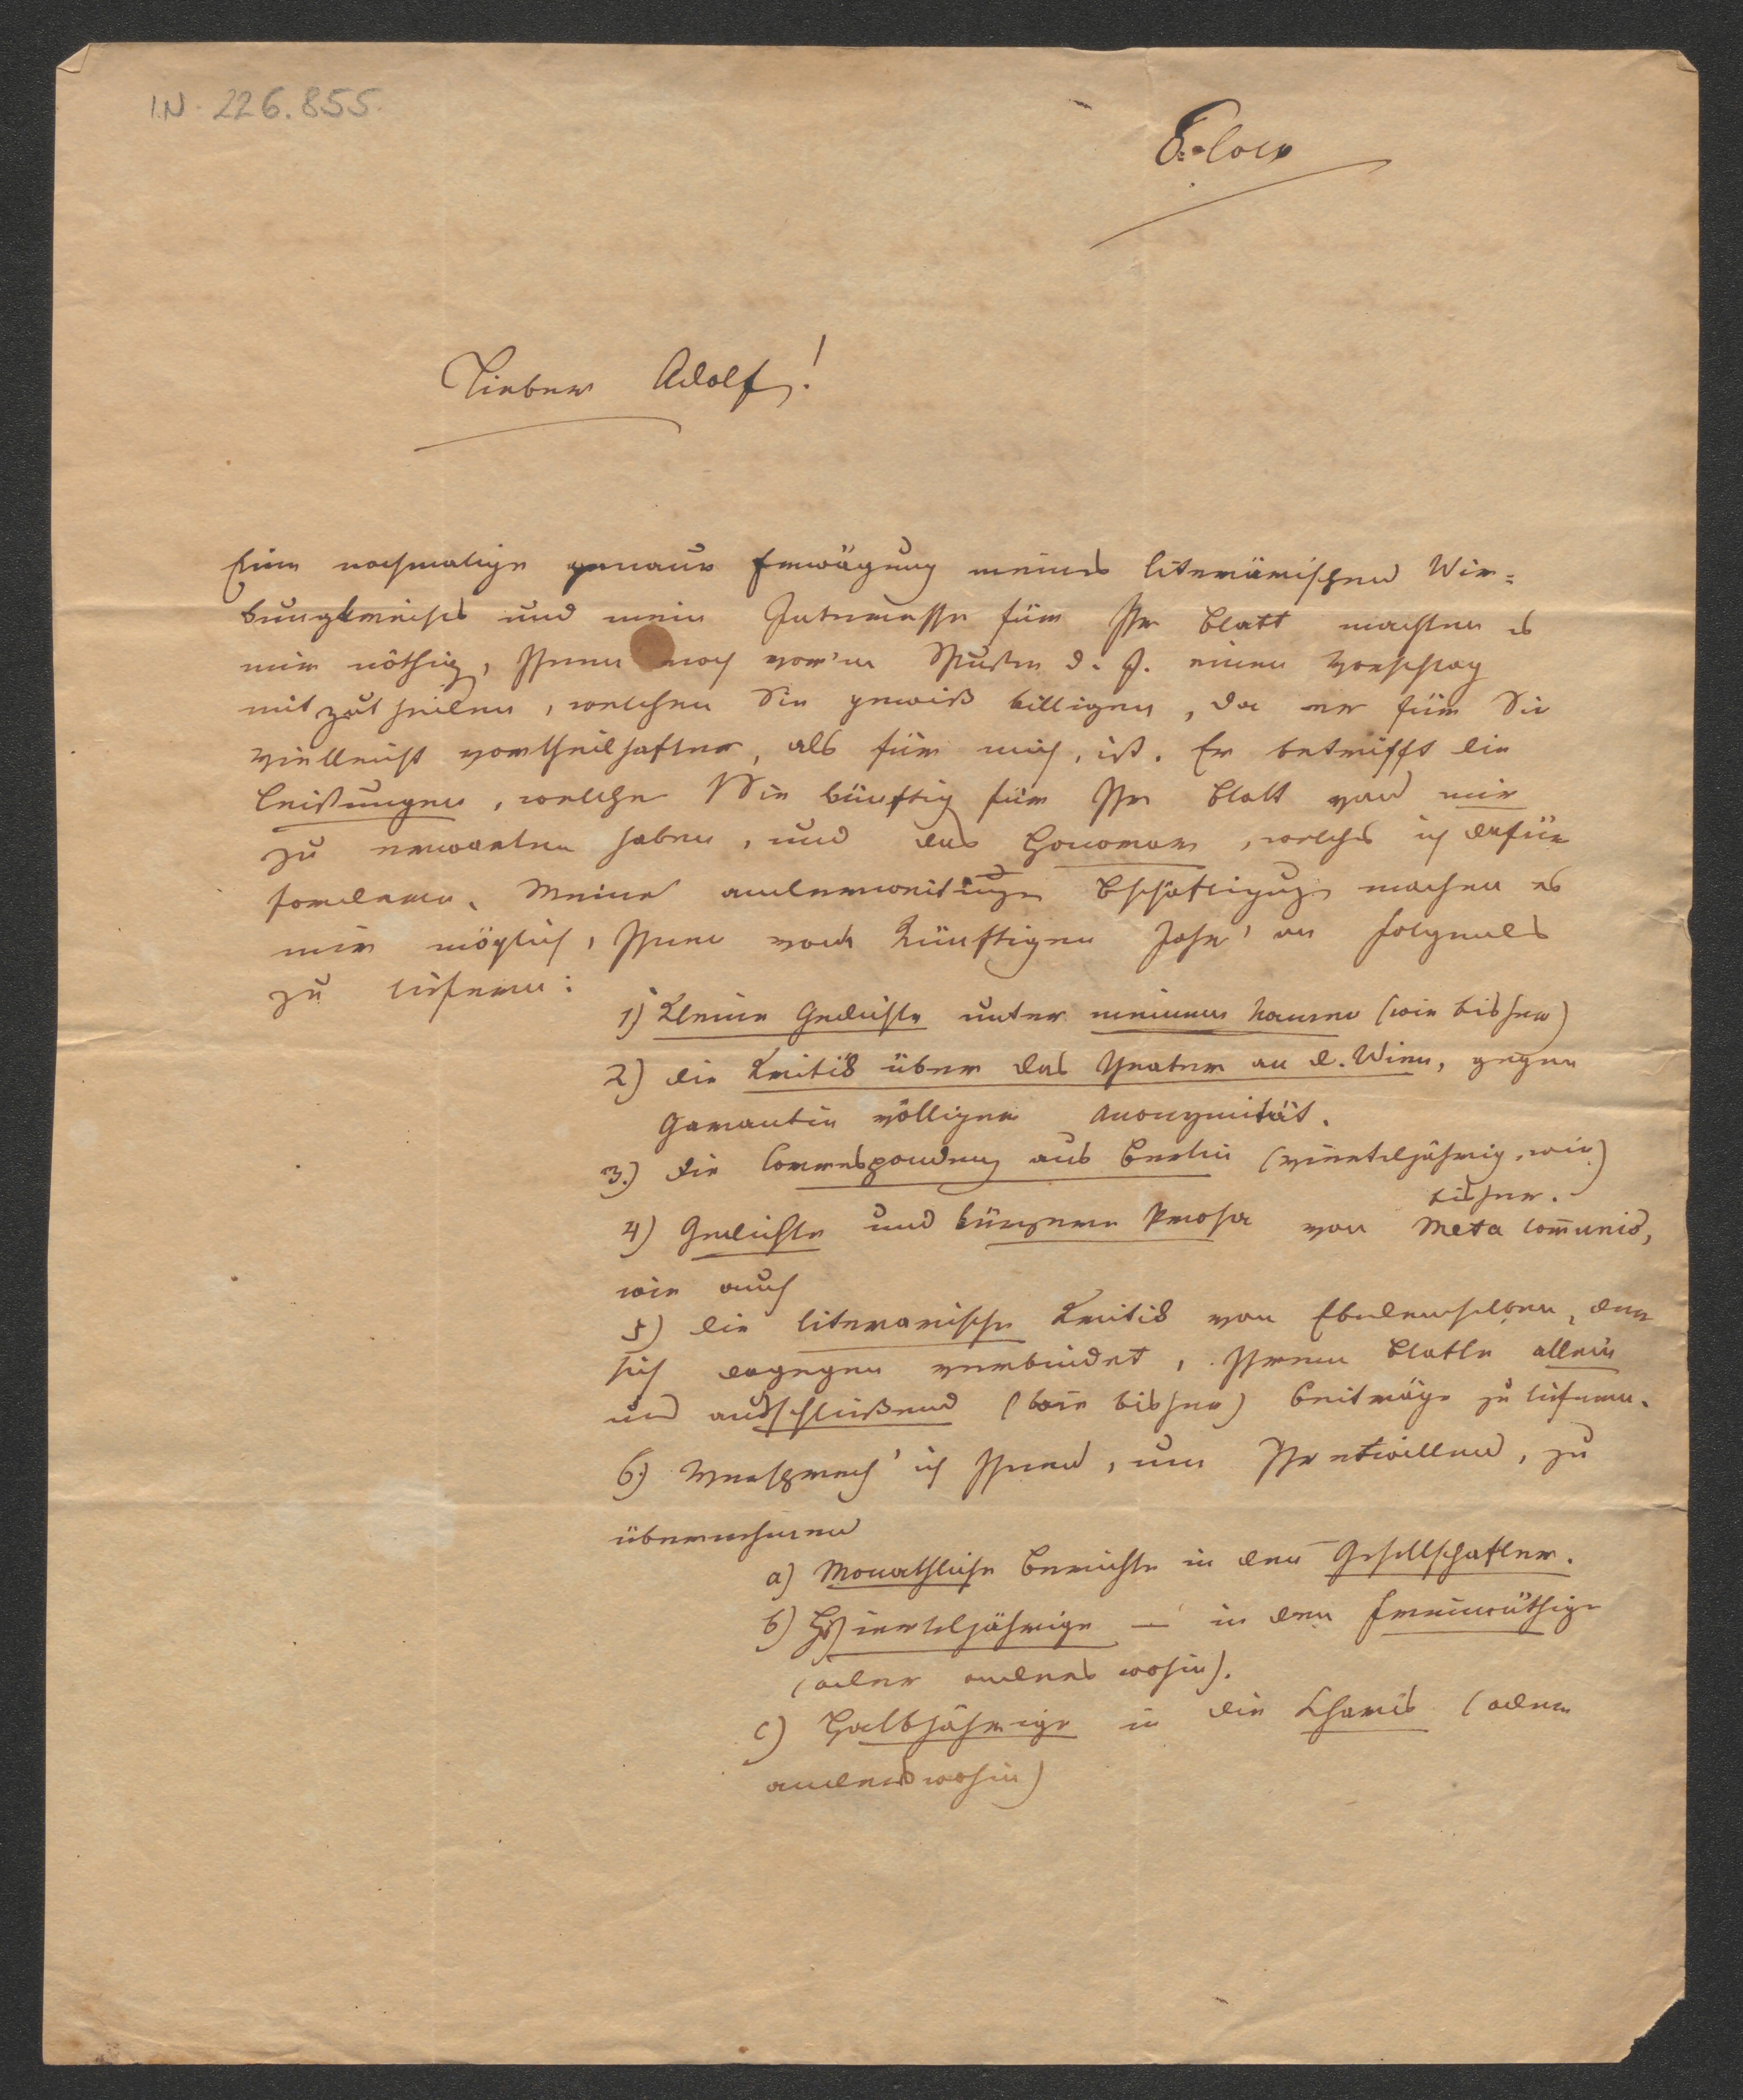 I.N. 226.855.
E. loco
Lieber Adolf!
Eine nochmalige genaue Erwägung meines literärischen Wir=
kungkreises und mein Interesse für Ihr Blatt machten es
mir nöthig, Ihnen noch vor'm Schluße d. J. einen Vorschlag
mitzutheilen, welchen Sie gewiß billigen, da er für Sie
vielleicht vortheilhafter, als für mich, ist. Er betrifft die
Leistungen, welche Sie künftig für Ihr Blatt von mir
zu erwarten haben, und das Honorar, welches ich dafür
fordere. Meine anderweitigen machen es
mir möglich, Ihnen vom künftigen Jahr' an folgendes
zu liefern:
1) Kleine Gedichte unter meinem Namen (wie bisher)
2) die Kritik über das Theater an d. Wien, gegen
Garantie völliger Anonymität.
3.) Die Correspondenz aus Berlin (vierteljährig, wie
bisher.)
4) Gedichte und kürzere Prosa von Meta Communis,
wie auch
5) die literarische Kritik von Ebendemselben, der
sich dagegen verbindet, Ihrem Blatte allein
und ausschließend (wie bisher) Beiträge zu liefern.
6.) Versprech' ich Ihnen, um Ihretwillen, zu
übernehmen
a) Monathliche Berichte in den Gesellschafter.
b) Vierteljährige — in den Freimüthige
(oder anderswohin).
c) Halbjährige in die Charis (oder
anderswohin)